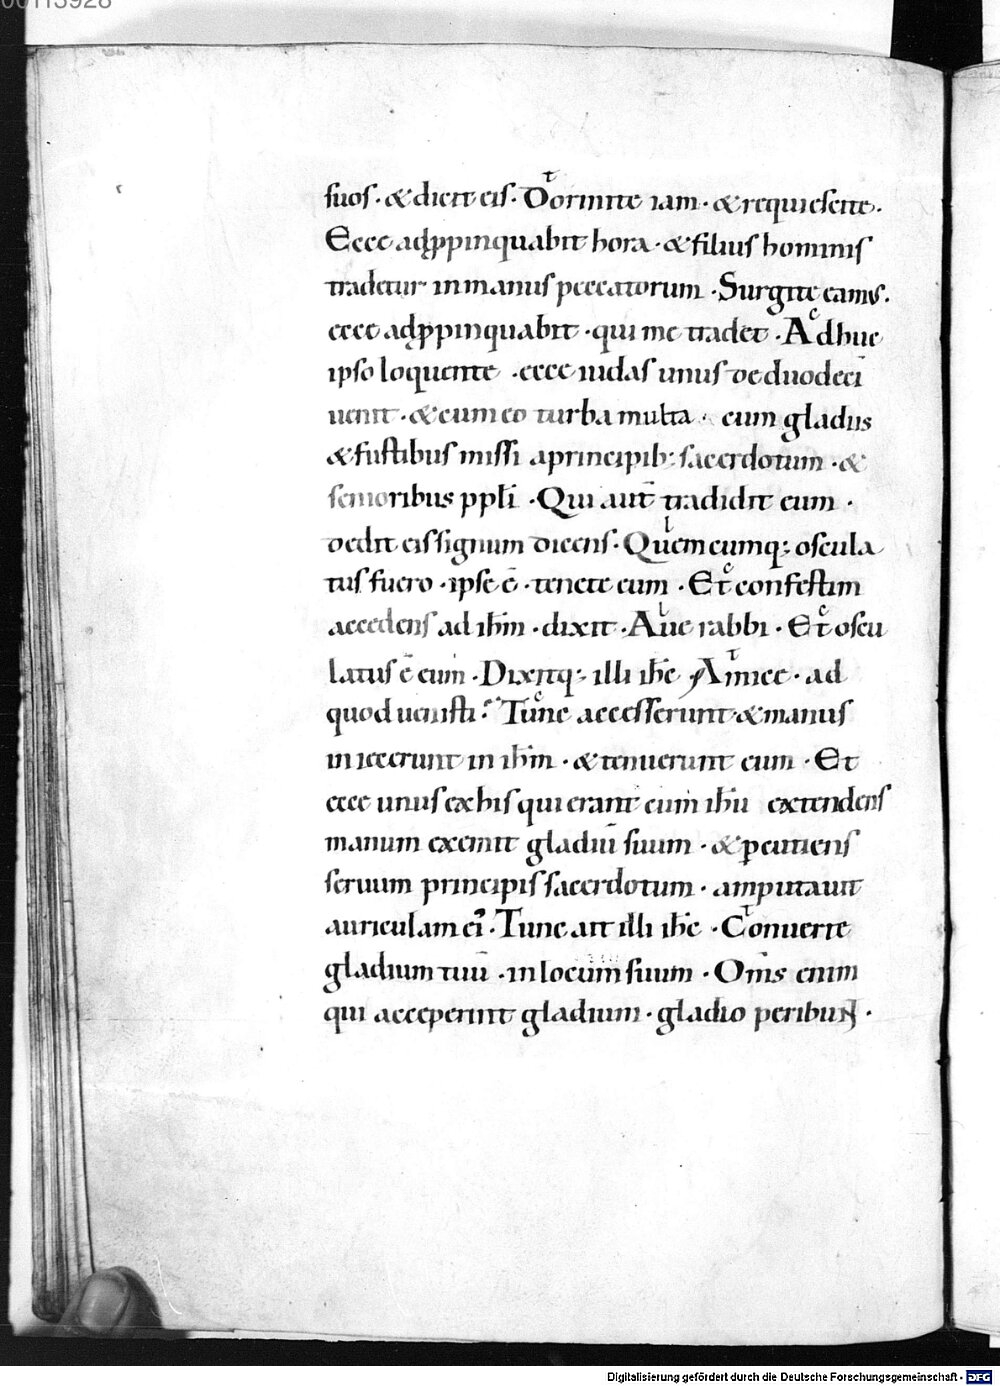 00113928
suos · & dicit eis · Dormite iam · & requiescite ·
Ecce adp̱pinquabit hora · & filius hominis
tradetur in manus peccatorum · Surgite eamus.
ecce adp̱pinquabit · qui me tradet · Adhuc
ipso loquente · ecce iudas unus de duodeci̅
uenit · & cum eo turba multa · cum gladiis
& fustibus missi a principib; sacerdotum · &
senioribus pp̅li · Qui aut̅ tradidit eum ·
dedit eis signum dicens · Quemcumq; oscula
tus fuero · ipse e̅ · tenete eum · Et confestim
accedens ad ih̅m · dixit · Aue rabbi · Et oscu
latus e̅ eum · Dixitq; illi ih̅c Amice · ad
quod uenisti? Tunc accesserunt & manus
iniecerunt in ih̅m · & tenuerunt eum · Et
ecce unus ex his qui erant cum ih̅u extendens
manum exemit gladiu̅ suum · & p̱cutiens
seruum principis sacerdotum · amputauit
auriculam ei' · Tunc ait illi ih̅c · Conuerte
gladium tuu̅ · in locum suum · Om̅s enim
qui acceperint gladium · gladio peribunt ·
Digitalisierung gefördert durch die Deutsche Forschungsgemeinschaft - DFG